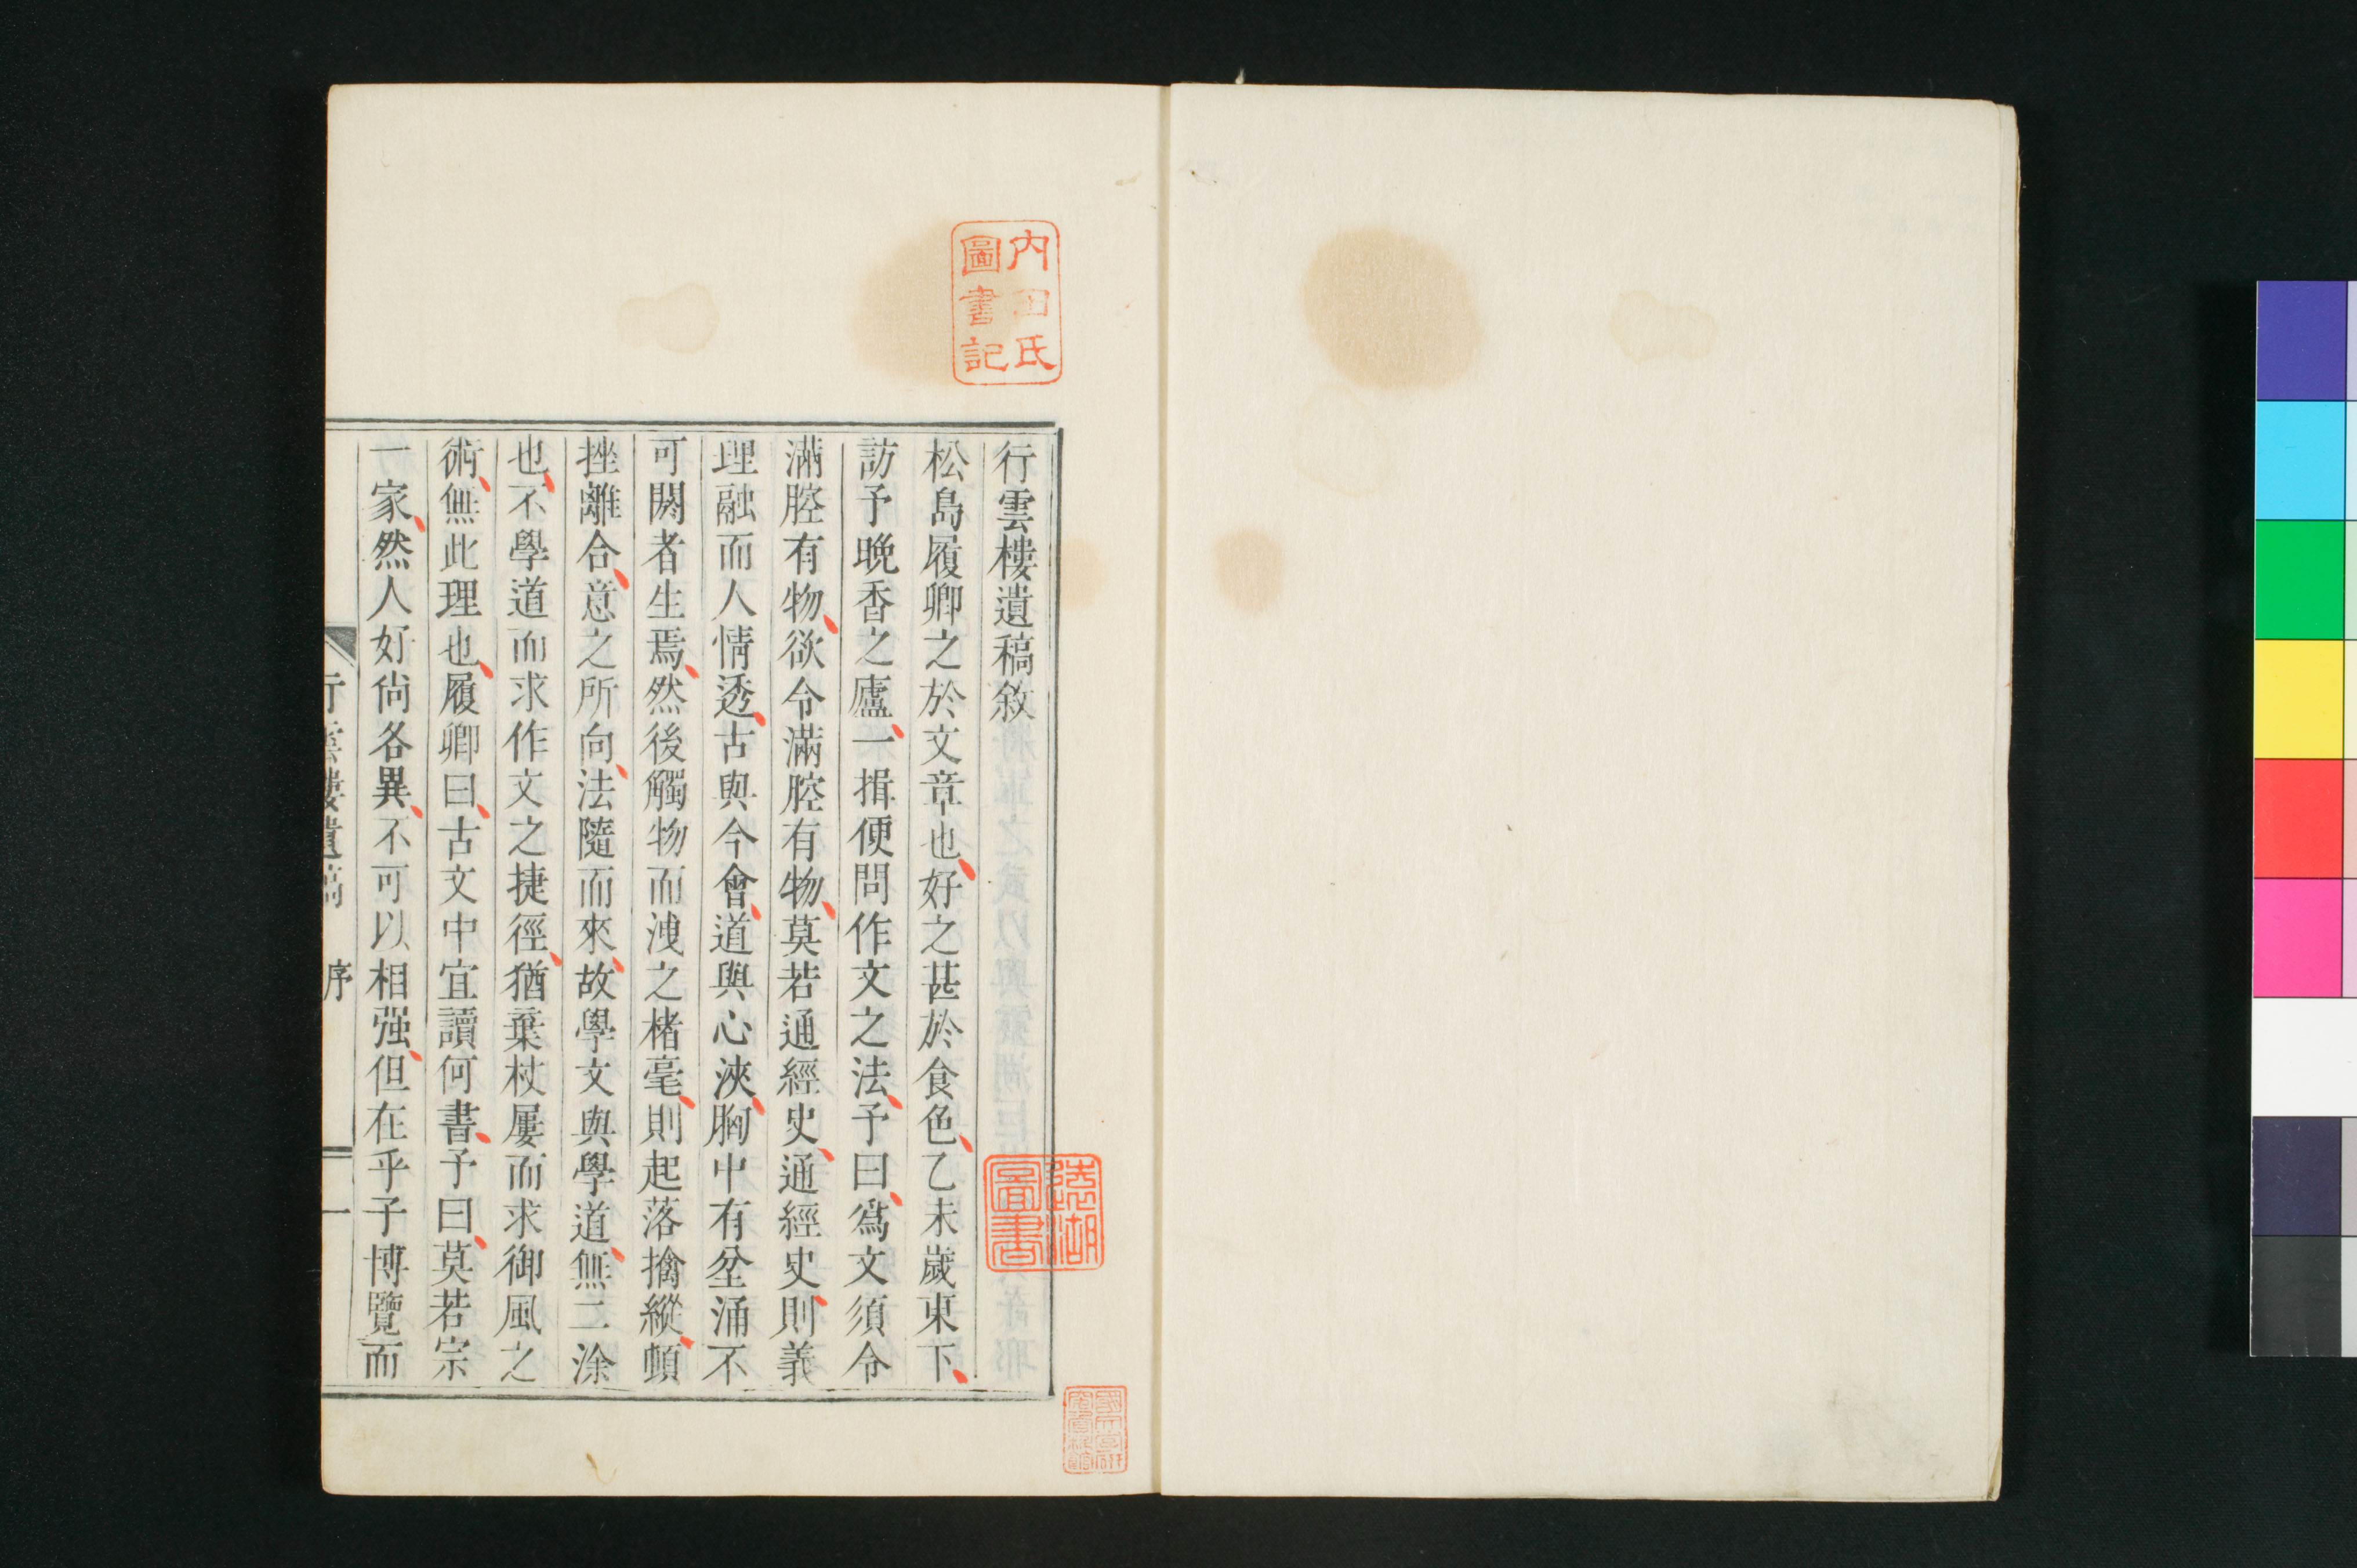 行雲樓遺稿敘
松島履卿之於文章也、好之甚於食色、乙未歲東下、
訪予晚香之廬、一揖便問作文之法、予曰、爲文須令
滿腔有物、欲令滿腔有物、莫若通經史、通經史、則義
理融而人情透、古與今會、道與心浹、胸中有坌涌不
可閼者生焉、然後觸物而洩之楮毫、則起落擒縱、頓
挫離合、意之所向、法隨而來、故學文與學道、無二涂
也、不學道而求作文之捷徑、猶棄杖屨而求御風之
術、無此理也、履卿曰、古文中宜讀何書、予曰、莫若宗
一家、然人好尙各異、不可以相强、但在乎子博覽而
行雲樓遺稿 序 一
內田氏
圖書記
遠湖
圖書